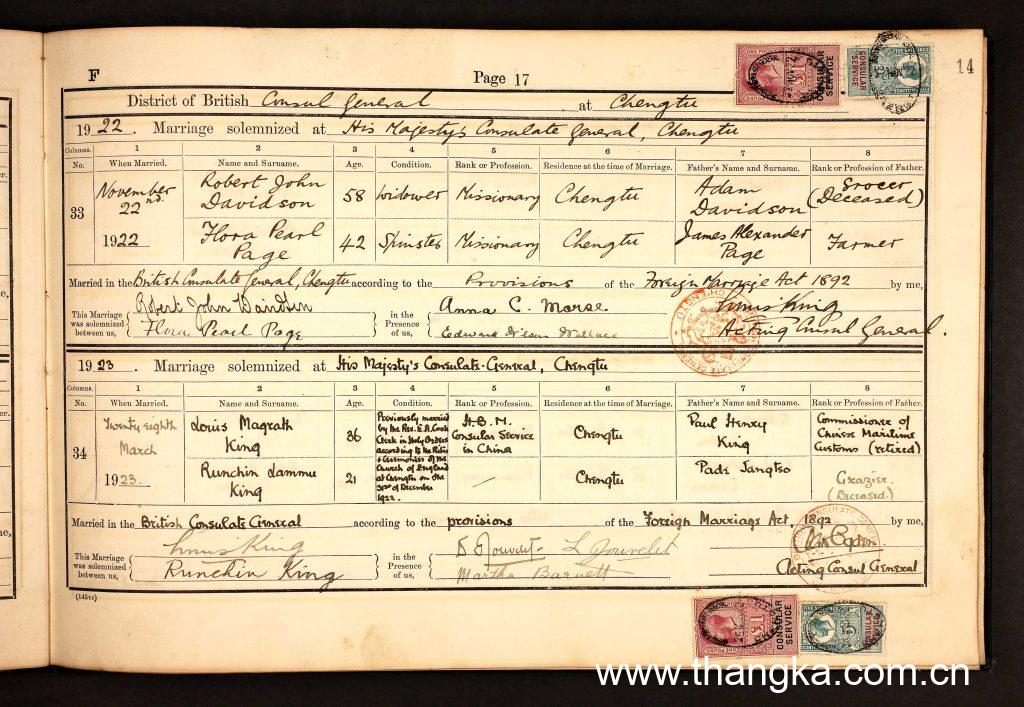 F
Page 17
14
District of British Consul General at Chengtu
1922. Marriage solemnized at His Majesty's Consulate General, Chengtu
Columns. 1 2 3 4 5 6 7 8
No. When Married. Name and Surname. Age. Condition. Rank or Profession. Residence at the time of Marriage. Father's Name and Surname. Rank or Profession of Father.
33 November 22nd. 1922
Robert John Davidson 58 Widower Missionary Chengtu Adam Davidson Grocer (Deceased)
Flora Pearl Page 42 Spinster Missionary Chengtu James Alexander Page Farmer
Married in the British Consulate General, Chengtu according to the Provisions of the Foreign Marriage Act 1892 by me,
This Marriage was solemnized between us,
Robert John Davidson
Flora Pearl Page
in the Presence of us,
Anna C. Morse.
Edward Wilson Wallace
Louis King
Acting Consul General.
1923. Marriage solemnized at His Majesty's Consulate-General, Chengtu
Columns. 1 2 3 4 5 6 7 8
No. When Married. Name and Surname. Age. Condition. Rank or Profession. Residence at the time of Marriage. Father's Name and Surname. Rank or Profession of Father.
34 Twenty eighth March 1923.
Louis Magrath King 36
Previously married by the Rev. E.A. Cook Clerk in Holy Orders according to the Rites & Ceremonies of the Church of England at Chengtu on the 31st of December 1922.
H.B.M. Consular Service in China Chengtu Paul Henry King Commissioner of Chinese Maritime Customs (retired)
Runchin Lammu King 21 Chengtu Pade Jangtso Grazier. (Deceased.)
Married in the British Consulate General according to the provisions of the Foreign Marriage Act, 1892 by me,
This Marriage was solemnized between us,
Louis King
Runchin King
in the Presence of us,
L Jouvelet
Martha Barnett
Acting Consul General
CONSULAR SERVICE
CONSULAR SERVICE
CONSULAR SERVICE
CONSULAR SERVICE
www.thangka.com.cn